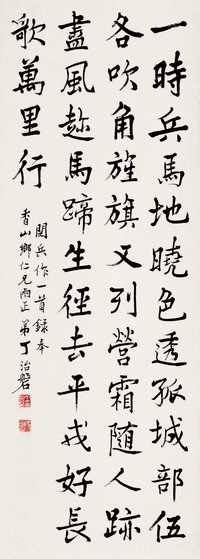 一時兵馬地曉色透孤城部伍
各吹角旌旗又列營霜隨人跡
盡風趂馬蹄生徑去平戎好長
歌萬里行
閱兵作一首錄奉
香山鄉仁兄兩正 弟丁治磐